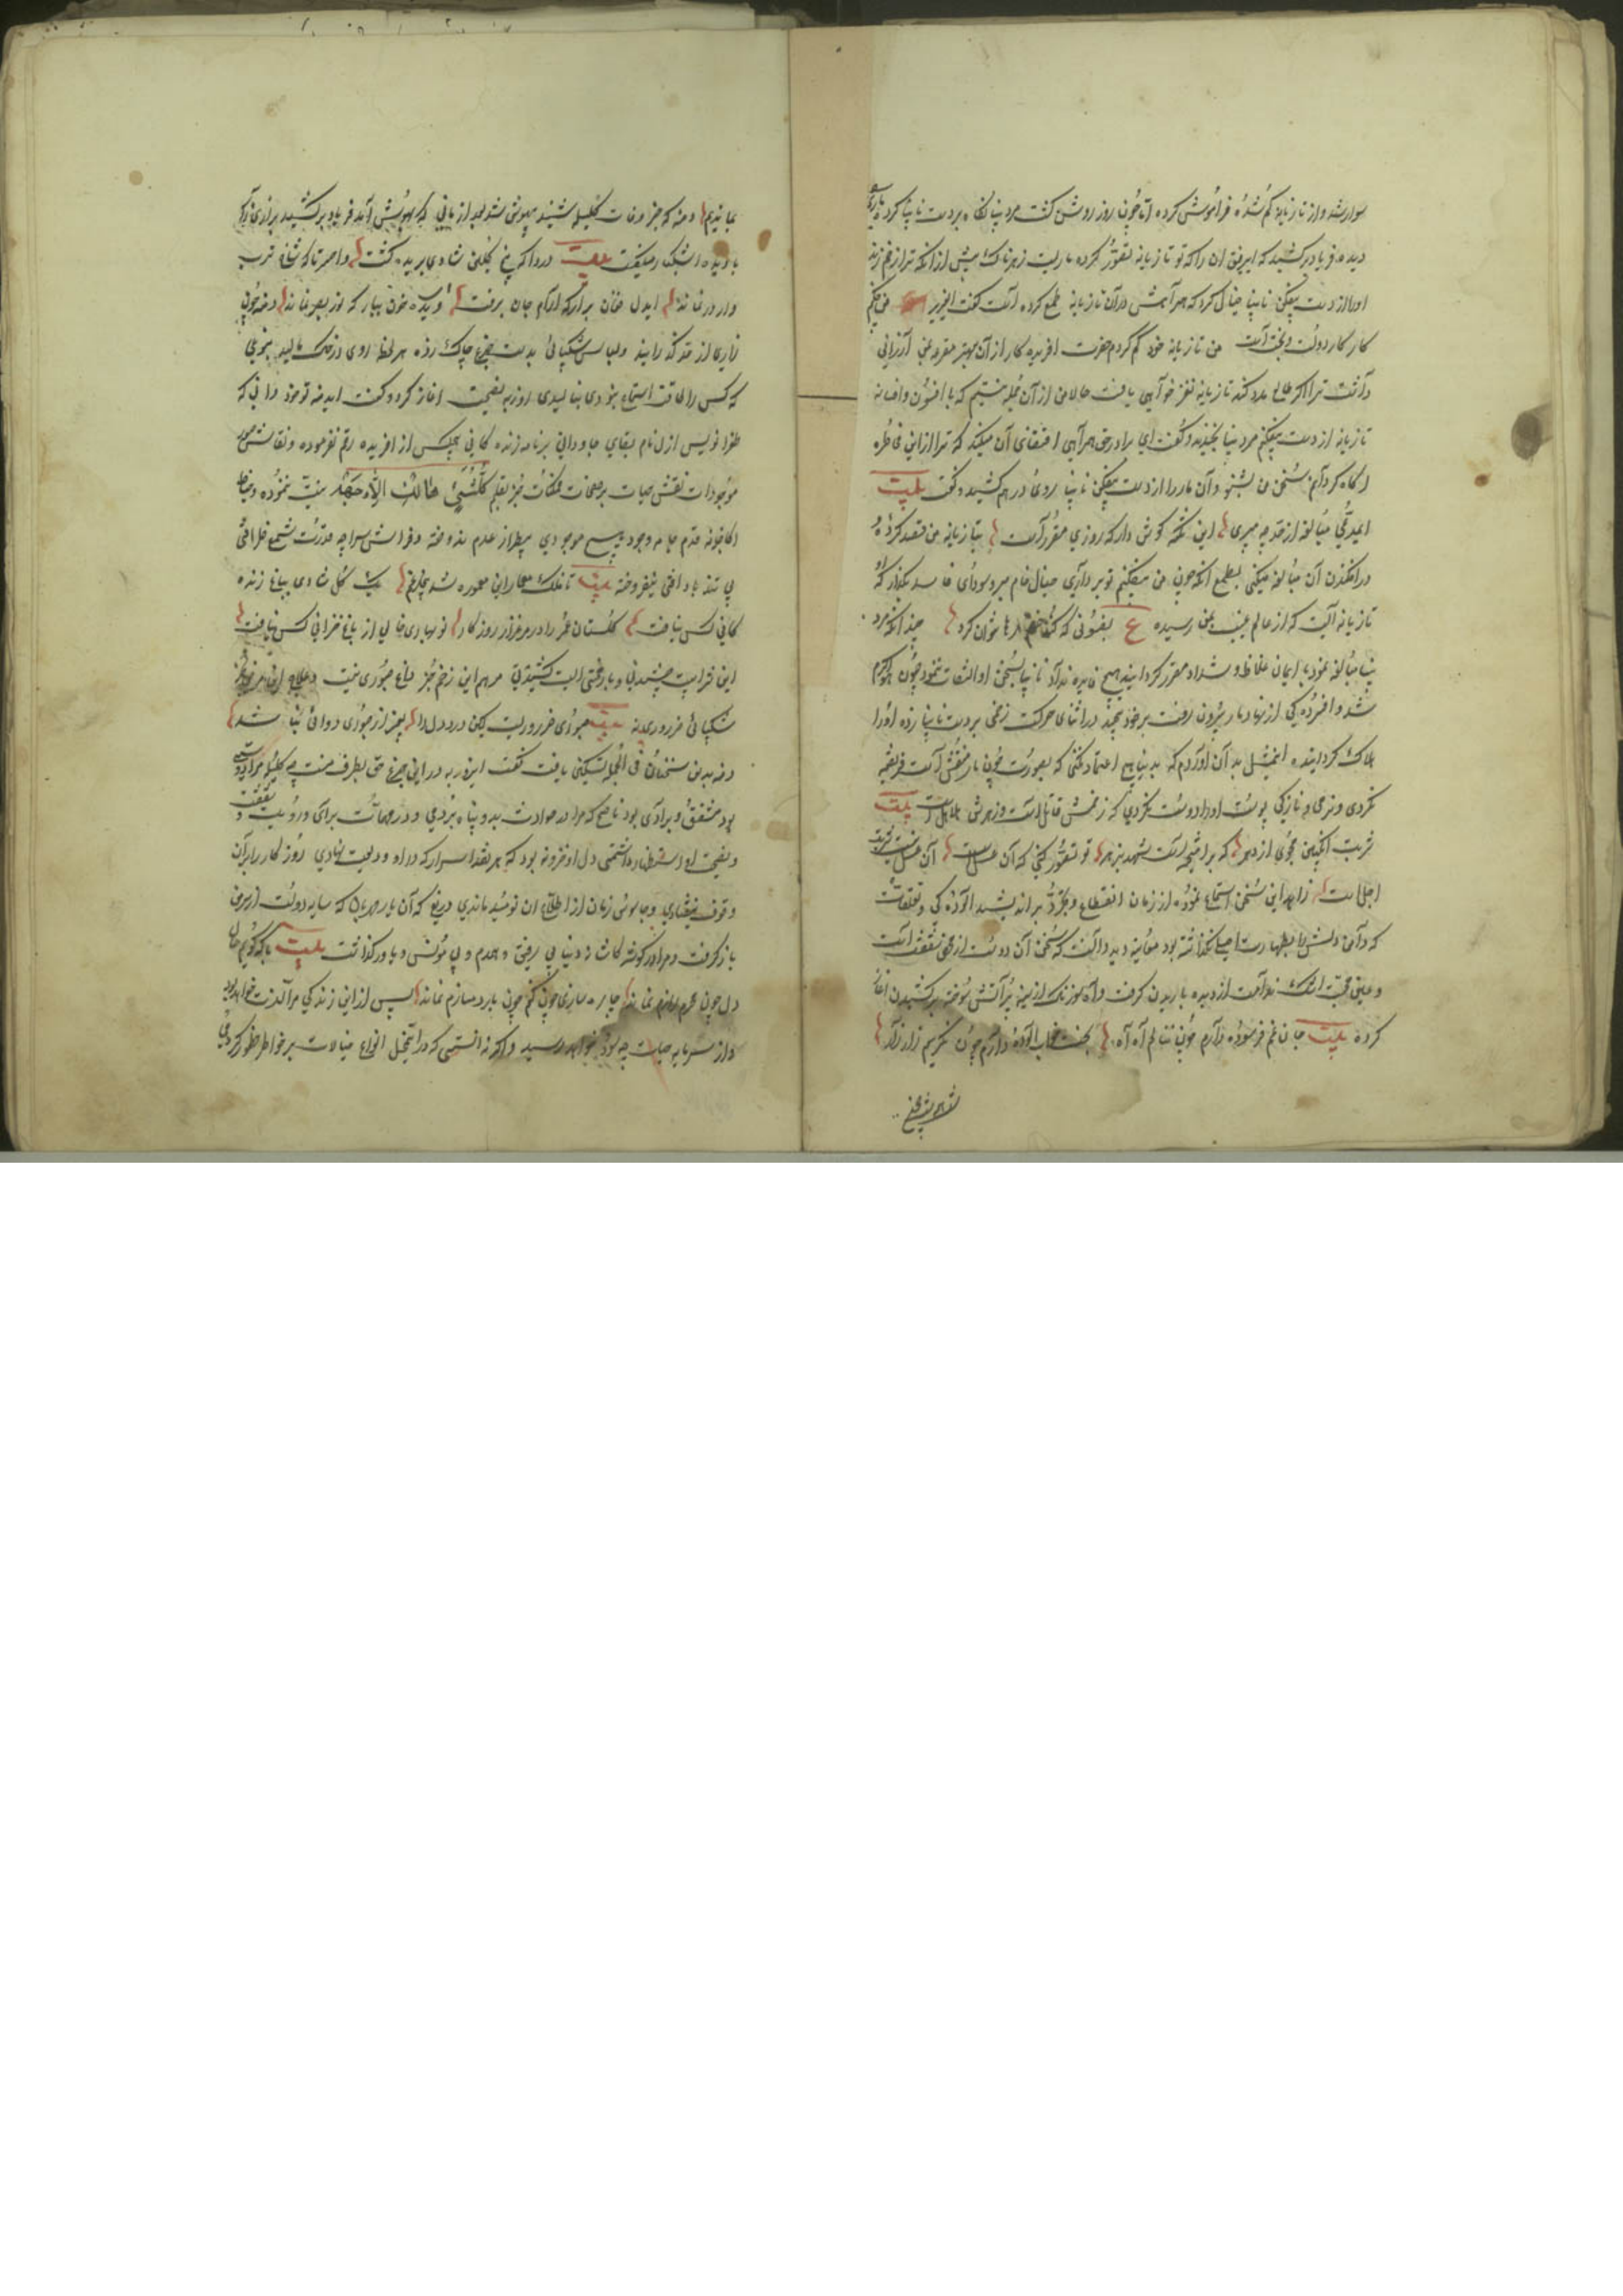 سوار شد و از تازیانه گم شده فراموش کرده اما چون روز روشن گشت مرد بینا نگاه بر دست نابینا کرد ماری
دید فریاد برکشید که ای رفیق آن را که تو تازیانه تصور کرده ماریست زهرناک پیش از آنکه ترا زخم زند
او را از دست بیفکن نابینا خیال کرد که همراهش در آن تازیانه طمع کرده است گفت ای عزیز من چکنم
کار کار دولت و بخت است من تازیانه خود گم کردم حضرت آفریده کار از آن بهتر مقرعه بمن ارزانی
داشت ترا اگر طالع مدد کند تازیانه نغز خواهی یافت حالا من از آن جمله نیستم که با افسون و افسانه
تازیانه از دست بیفکنم مرد بینا بخندید و گفت ای برادر حق همراهی اقتضای آن میکند که ترا از این مخاطره
آگاه گردانم سخن من بشنو و آن مار را از دست بیفکن نابینا روی درهم کشید و گفت بیت
ای مدعی مبالغه از حد چه میبری این نکته گوش دار که روزی مقرر است بتازیانه من قصد کرده و
در افکندن آن مبالغه میکنی بطمع آنکه چون من بیفکنم تو برداری خیال خام مبر و سودای فاسد بگذار که
تازیانه آیست که از عالم غیب بمن رسیده ع بفسونی که کند خصم رها نتوان کرد چندانکه مرد
بینا مبالغه نمود بایمان غلاظ و شداد مقرر گردانید هیچ فایده نداد نابینا بسخن او التفات ننمود چون هوا گرم
شد و افسردگی از نهاد مار بیرون رفت بر خود بپیچید در اثنای حرکت زخمی بر دست نابینا زده او را
هلاک گردانید این مثل بدان آوردم که بدنیا هم اعتماد نکنی که بصورت چون مار منقش است فریفته
نگردی و نرمی و نازکی پوست او را دوست نگردی که زخمش قاتل است و زهرش هلاهل است بیت
شربت انگبین مجوی از دهر که برآمیخته است شهد بزهر تو تصور کنی که آن عسل است آن عسل نیست شربت
اجل است زاهد این سخن استماع نموده از زمان انقطاع و تجرد بر اندیشید آلودگی و تعلقات
که دامن دلش را بطهارت اصلی نگذاشته بود معاینه دید دانست که سخن آن دوست از محض شفقت است
و عین محبت اشک ندامت از دیده باریدن گرفت و آه سوزناک از سینه پر آتش سوخته برکشیدن آغاز
کرده بیت جان غم فرسوده دارم چون ننالم آه آه بخت خواب آلوده دارم چون نگریم زار زار
بمانیم دمنه که خبر وفات کلیله شنید بیهوش شد بعد از مانی که بهوش آمد فریاد برکشید بزاری زار
با دیده اشکبار میگفت بیت دردا که مرغ گلبن شادی پریده گشت وا حسرتا که شاخ طرب
وار در نماند ای دل فغان برآر که آرام جان برفت ای دیده خون ببار که نور بصر نماند دمنه چون
زاری از حد گذرانید و لباس شکیبائی بدست جزع چاک زده هر لحظه روی در خاک مالید بنوعی
که کس را طاقت استماع نبودی بنالیدی روزبه نصیحت آغاز کرد و گفت ای دمنه تو خود دانی که
طغرانویس ازل نام بقای جاودانی بر نامه زندگانی هیچکس از آفریده رقم نفرموده و نقاش صور
موجودات نقش حیات بر صفحات ممکنات جز بقلم کل شئ هالک الا وجهه ثبت ننموده و خیاط
کارخانه قدم جامه وجود هیچ موجودی بی‌طراز عدم ندوخته و فراش سراچه قدرت شمع طراقی
بی تندباد فنا نیفروخته بیت تا فلک معمار این معموره شد بی‌رنج یک گل شادی بباغ زنده
گانی کس نیافت گلستان عمر را در مرغزار روزگار نوبهاری خالی از باغ خزانی کس نیافت
این شرابیست چشیدنی و بار محنتی است کشیدنی مرهم این زخم جز داغ صبوری نیست و علاج این مرض جز
شکیبائی ضروری نه بیت صبوری ضروریست کین درد دل را بغیر از صبوری دوائی نباشد
دمنه بدین سخنان فی الجمله تسکینی یافت گفت ای روزبه در این جزع حق بطرف منست چه کلیله مرا دوستی
بود مشفق و برادری بود ناصح که مرا در حوادث بدو پناه بردمی و در مهمات برای و رویت و شفقت
و نصیحت او استظهار داشتمی دل او خزینه بود که هر نقد اسرار که در او ودیعت نهادی روزگار را بر آن
وقوف نیفتادی و جاسوس زمان از اطلاع آن نومید ماندی دریغ که آن یار مهربان که سایه دولت از سر من
باز گرفت و مرا در گوشه کاشانه دنیا بی رفیق و همدم و بی مونس و یاور گذاشت بیت با که گویم حال
دل چون محرم رازم نماند چاره سازی چون کنم چون یار دمسازم نماند پس از این زندگی مرا لذت نخواهد بود
و از سرمایه حیات چه سود خواهد رسید و اگر نه آنستی که در این تخیل انواع خیالات بر خواطر خطور کردی